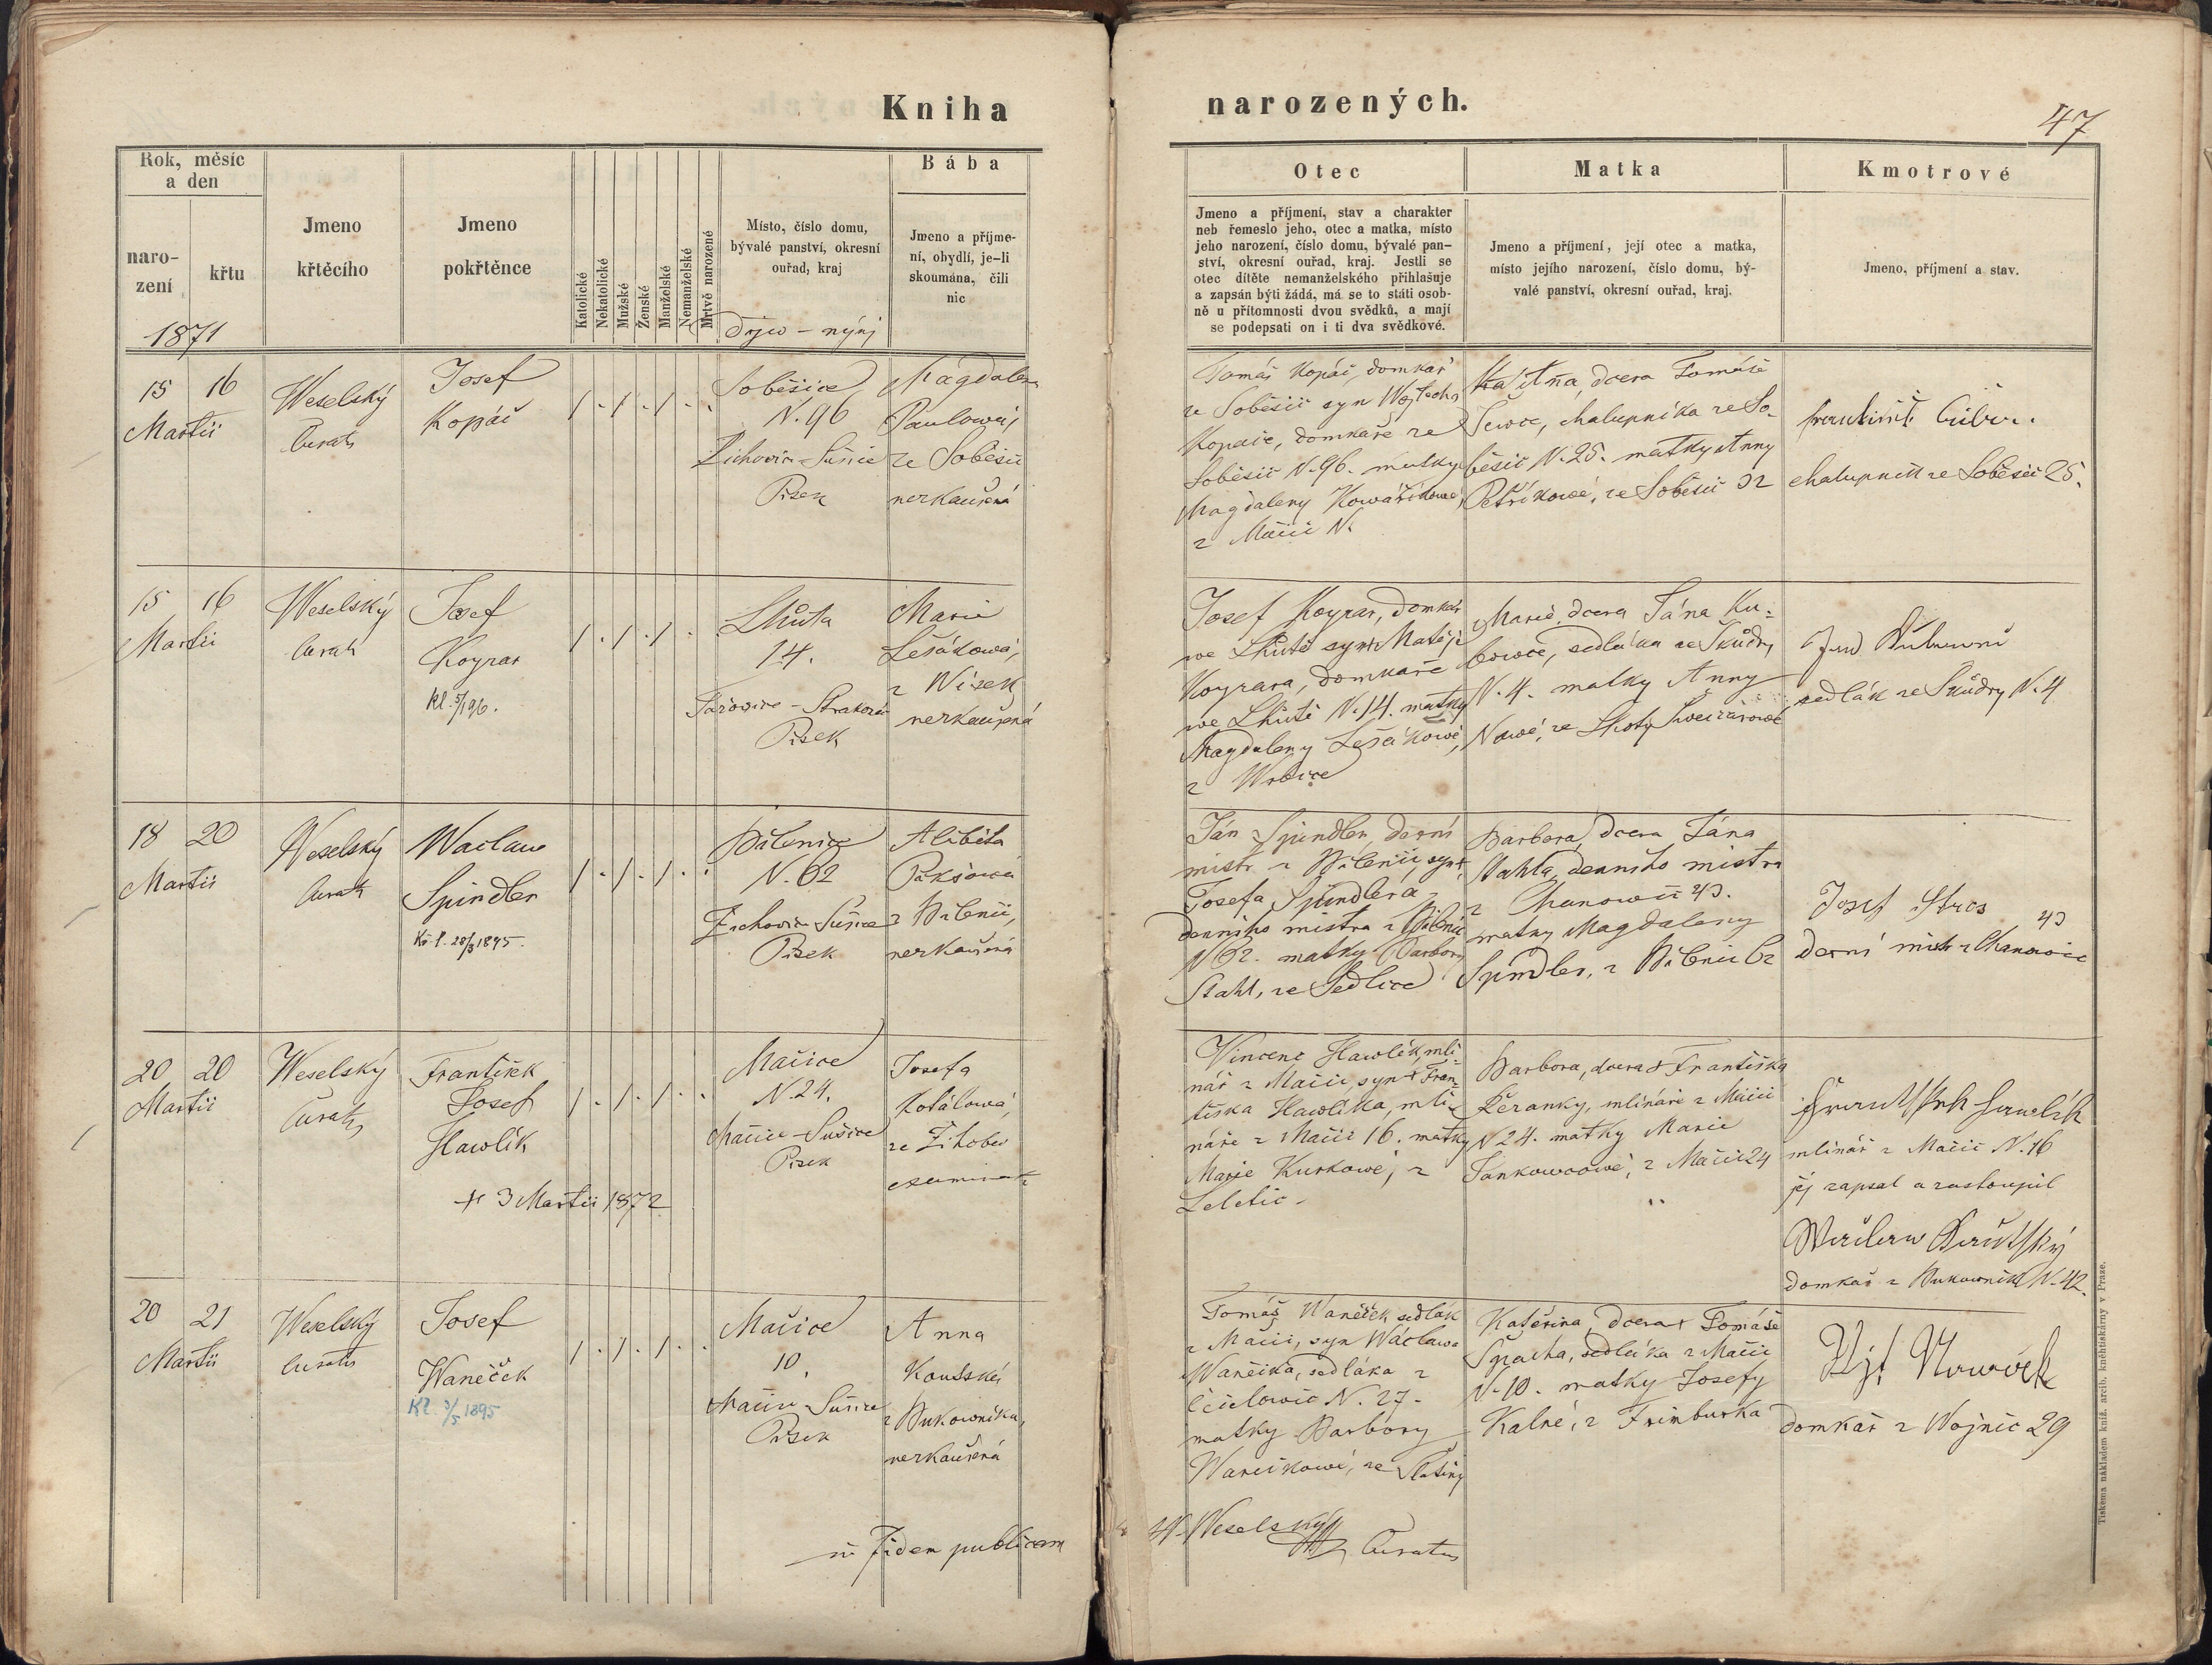 Kniha
narozených.
47
Rok, měsíc
a den
naro-
zení
křtu
1871
Jmeno
křtěcího
Jmeno
pokřtěnce
Katolické
Nekatolické
Mužské
Ženské
Manželské
Nemanželské
Mrtvě narozené
Místo, číslo domu,
bývalé panství, okresní
ouřad, kraj
Bába
Jmeno a příjme-
ní, obydlí, je-li
skoumána, čili
nic
Otec
Jmeno a příjmení, stav a charakter
neb řemeslo jeho, otec a matka, místo
jeho narození, číslo domu, bývalé pan-
ství, okresní ouřad, kraj. Jestli se
otec dítěte nemanželského přihlašuje
a zapsán býti žádá, má se to státi osob-
ně u přítomnosti dvou svědků, a mají
se podepsati on i ti dva svědkové.
Matka
Jmeno a příjmení, její otec a matka,
místo jejího narození, číslo domu, bý-
valé panství, okresní ouřad, kraj.
Kmotrové
Jmeno, příjmení a stav.
15 16
Martii
Weselský
Curat
Josef
Kopáč
Soběšice
N. 96
Žichovic-Sušice
Písek
Magdalena
Paulowá,
ze Soběšic
nezkoušená
Tomáš Kopáč, domkář
ze Soběšic syn Wojtěcha
Kopáče, domkáře ze
Soběšic N. 96. matky
Magdaleny Kowaříkowé,
z Mačic N.
dcera Tomáše
Šewce, chalupníka ze So-
běšic N. 25. matky Anny
Petříkowé, ze Soběšic 32
chalupník ze Soběšic 25.
15 16
Martii
Weselský
Curat
Josef
Koyzar
Lhůta
14.
Písek
Marie
Lešákowá,
nezkoušená
Josef Koyzar, domkář
we Lhůtě syn Matěje
Koyzara, domkáře
we Lhůtě N. 14. matky
Magdaleny Lešákowé,
Marie, dcera Jána Ku-
bowce, sedláka ze Škůdry
N. 4. matky Anny
Nowé, ze Lhoty
sedlák ze Škůdry N. 4
18 20
Martii
Weselský
Curat
Waclaw
Spindler
28/3 1895.
Bilenice
N. 62
Žichowic Sušice
Písek
Alžběta
z Bilenic,
nezkoušená
Ján Spindler, derní
mistr z Bilenic, syn +
Josefa Spindlera
derního mistra z Bilenic
N 62. matky Barbory
Stahl, ze Sedlice
Barbora, dcera Jána
Wahla, derního mistra
z Chanowic 43.
matky Magdaleny
Spindler, z Bilenic 62
Josef Stros 43
derní mistr z Chanowic
20 20
Martii
Weselský
Curat
František
Josef
Hawlík
+ 3 Martii 1872
Mačice
N. 24.
Mačice-Sušice
Písek
Josefa
Kotálowá,
ze Žihobec
Vincenc Hawlík, mli-
nář z Mačic, syn + Fran-
tiška Hawlíka, mli-
náře z Mačic 16. matky
Marie Kurkowé, z
Leletic
Barbora, dcera + Františka
Beranky, mlináře z Mačic
N 24. matky Marie
Jankowcowé, z Mačic 24
František Hawlík
mlinář z Mačic N. 16
jej zapsal a zastoupil
domkář z Bukownika N. 42.
20 21
Martii
Weselský
Curatus
Josef
Waněček
Kl. 1895
Mačice
10.
Mačice Sušice
Písek
Anna
Koutská
z Bukownika,
nezkoušená
Tomáš Waněček sedlák
z Mačic, syn Wáclawa
Wančíka, sedláka z
N. 27.
matky Barbory
Wancíkowé, ze Slatiny
Kateřina, dcera + Tomáše
Špacha, sedláka z Mačic
N. 10. matky Josefy
Kalné, z Frimburka
Nowáček
domkář z Wojnic 29
in fidem publicam
W. Weselský
Curatus
Tiskema nákladem kníž. arcib. kněhtiskárny v Praze.